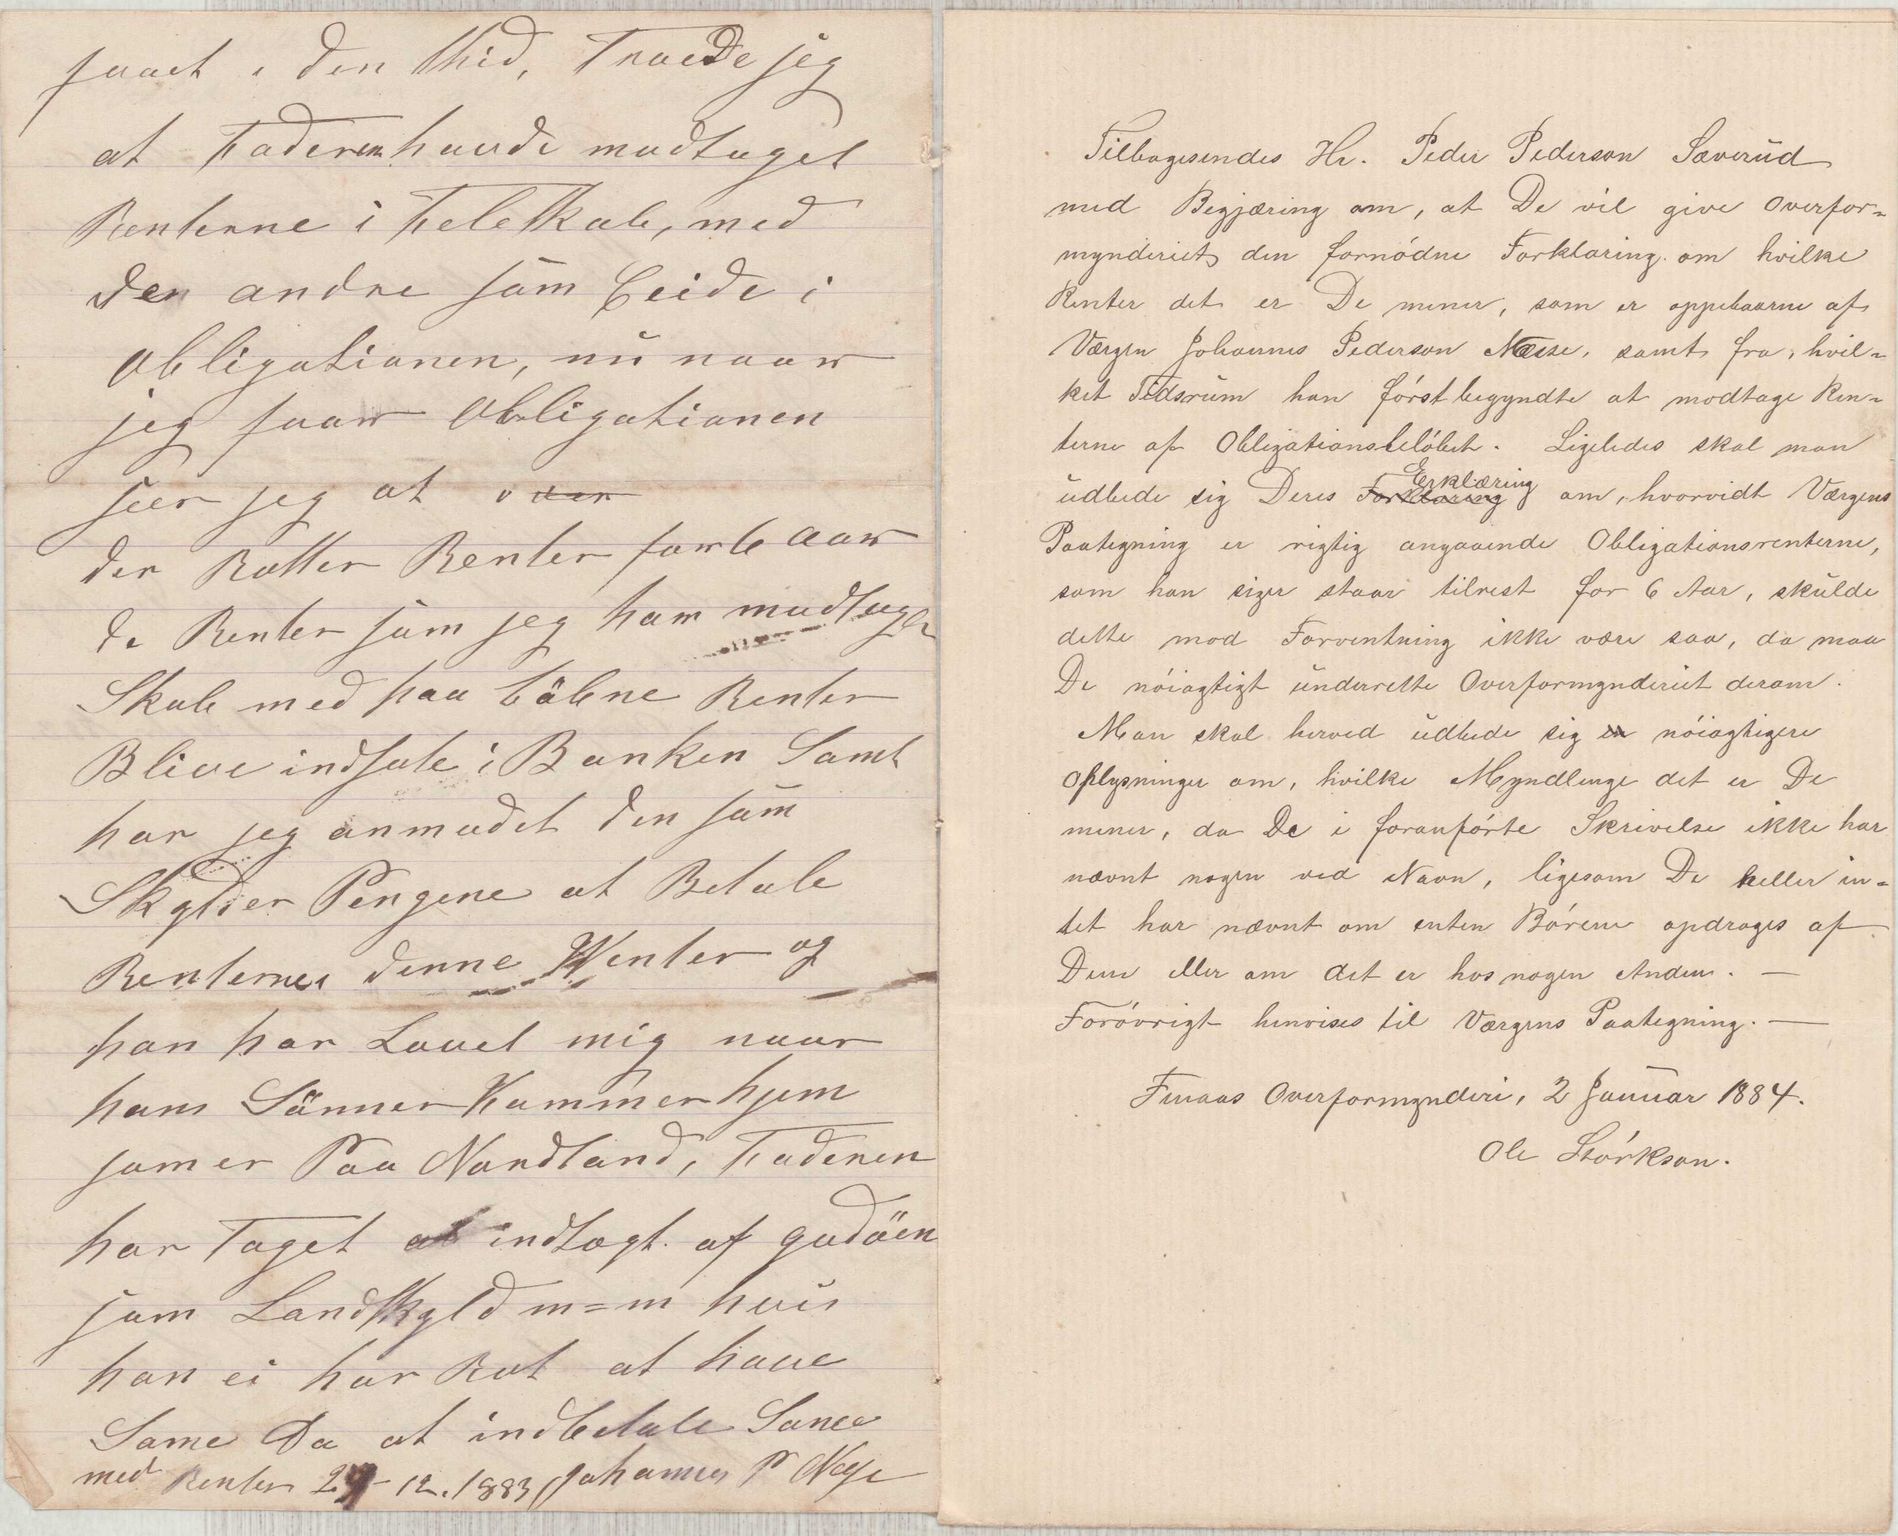 faaet i den thid, Troede jeg
at Faderen havde modtaget
Renterne i Feleskab, med
den andre som Eeide i
obligationen, nu naar
jeg faar obligationen
seer jeg at
der Rotter Renter for 6 aar
de Renter som jeg har modtaget
Skule med paa løbne Renter
Blive indsate i Banken Samt
har jeg anmodet den som
Skylder Pengene at Betale
Renterne denne Venter og
han har Lovet mig naar
hans Sönner Kommer hjem
som er Paa Nordland, Faderen
har Taget at indtægt af godöen
som Landskyld m=m hvis
han ei har Ret at have
Same Da at indbetale Same
med Renter 29-12.1883 Johannes P Næse
Tilbagesendes Hr. Peder Pederson Sæverud
med Begjæring om, at De vil give Overfor-
mynderiet den fornödne Forklaring om hvilke
Renter det er De mener, som er oppebaarne af
Værgen Johannes Pederson Næsse, samt fra hvil-
ket Tidsrum han först begyndte at modtage Ren-
terne af Obligationsbelöbet. Ligeledes skal man
udbede sig Deres Forklaring Erklæring om, hvorvidt Værgens
Paategning er rigtig angaaende Obligationsrenterne,
som han siger staar tilrest for 6 Aar, skulde
dette mod Forventning ikke være saa, da maa
De nöiagtigt underrette Overformynderiet derom.
Man skal herved udbede sig en nöiagtigere
Oplysninger om, hvilke Myndlinge det er De
mener, da De i foranförte Skrivelse ikke har
nævnt nogen ved Navn, ligesom De heller in-
tet har nævnt om enten Börene opdrages af
Dem eller om det er hos nogen Anden. —
Foröovrigt henvises til Værgens Paategning. —
Finaas Overformynderi, 2 Januar 1884.
Ole Störkson.